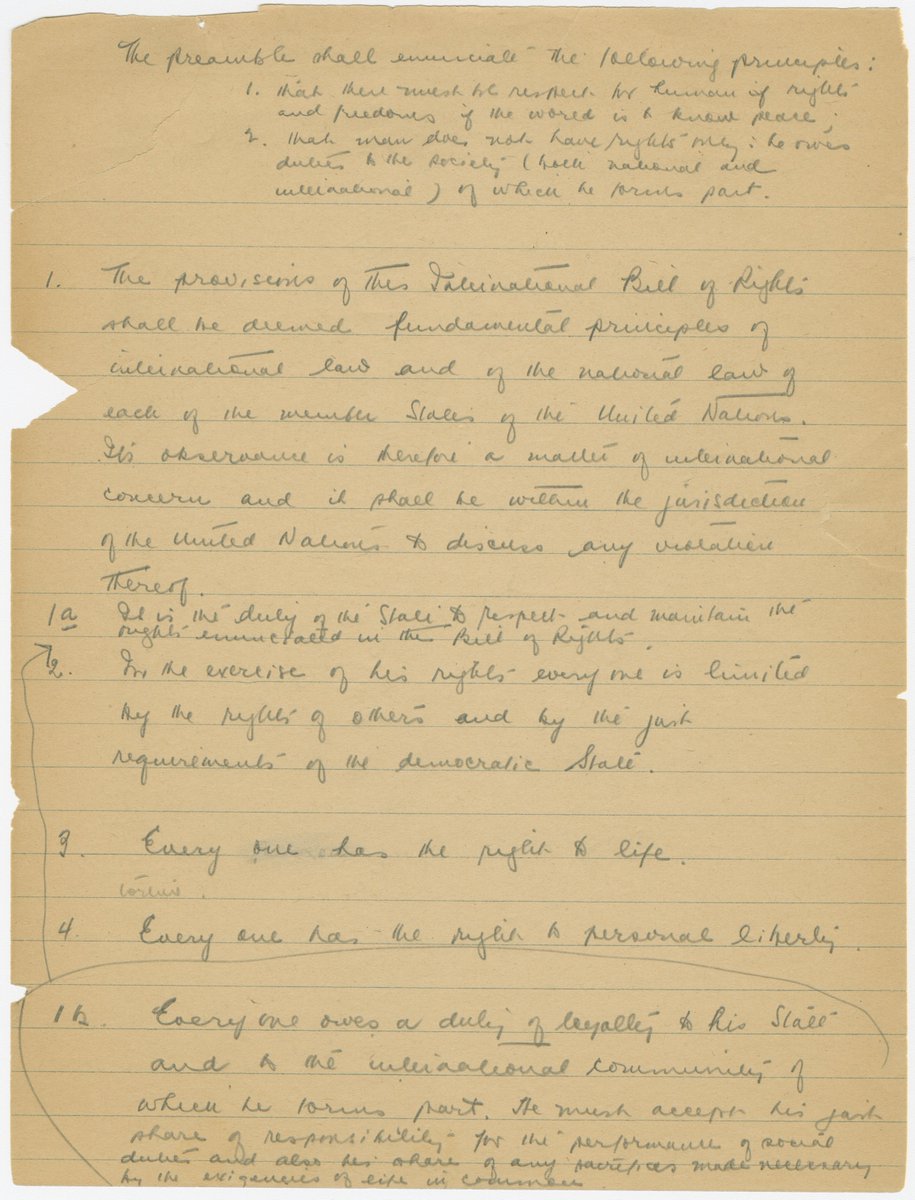 The preamble shall enunciate the following principles:
1. that there must be respect for human rights
and freedoms if the world is to know peace;
2. that man does not have rights only: he owes
duties to the society (both national and
international) of which he forms part.
1. The provisions of this International Bill of Rights
shall be deemed fundamental principles of
international law and of the national law of
each of the member States of the United Nations.
Its observance is therefore a matter of international
concern and it shall be within the jurisdiction
of the United Nations to discuss any violation
thereof.
1a It is the duty of the State to respect and maintain the
rights enunciated in the Bill of Rights.
2. In the exercise of his rights every one is limited
by the rights of others and by the just
requirements of the democratic State.
3. Every one has the right to life.
4. Every one has the right to personal liberty.
1b. Every one owes a duty of loyalty to his State
and to the international community of
which he forms part. He must accept his just
share of responsibility for the performance of social
duties and also his share of any sacrifices made necessary
by the exigencies of life in common